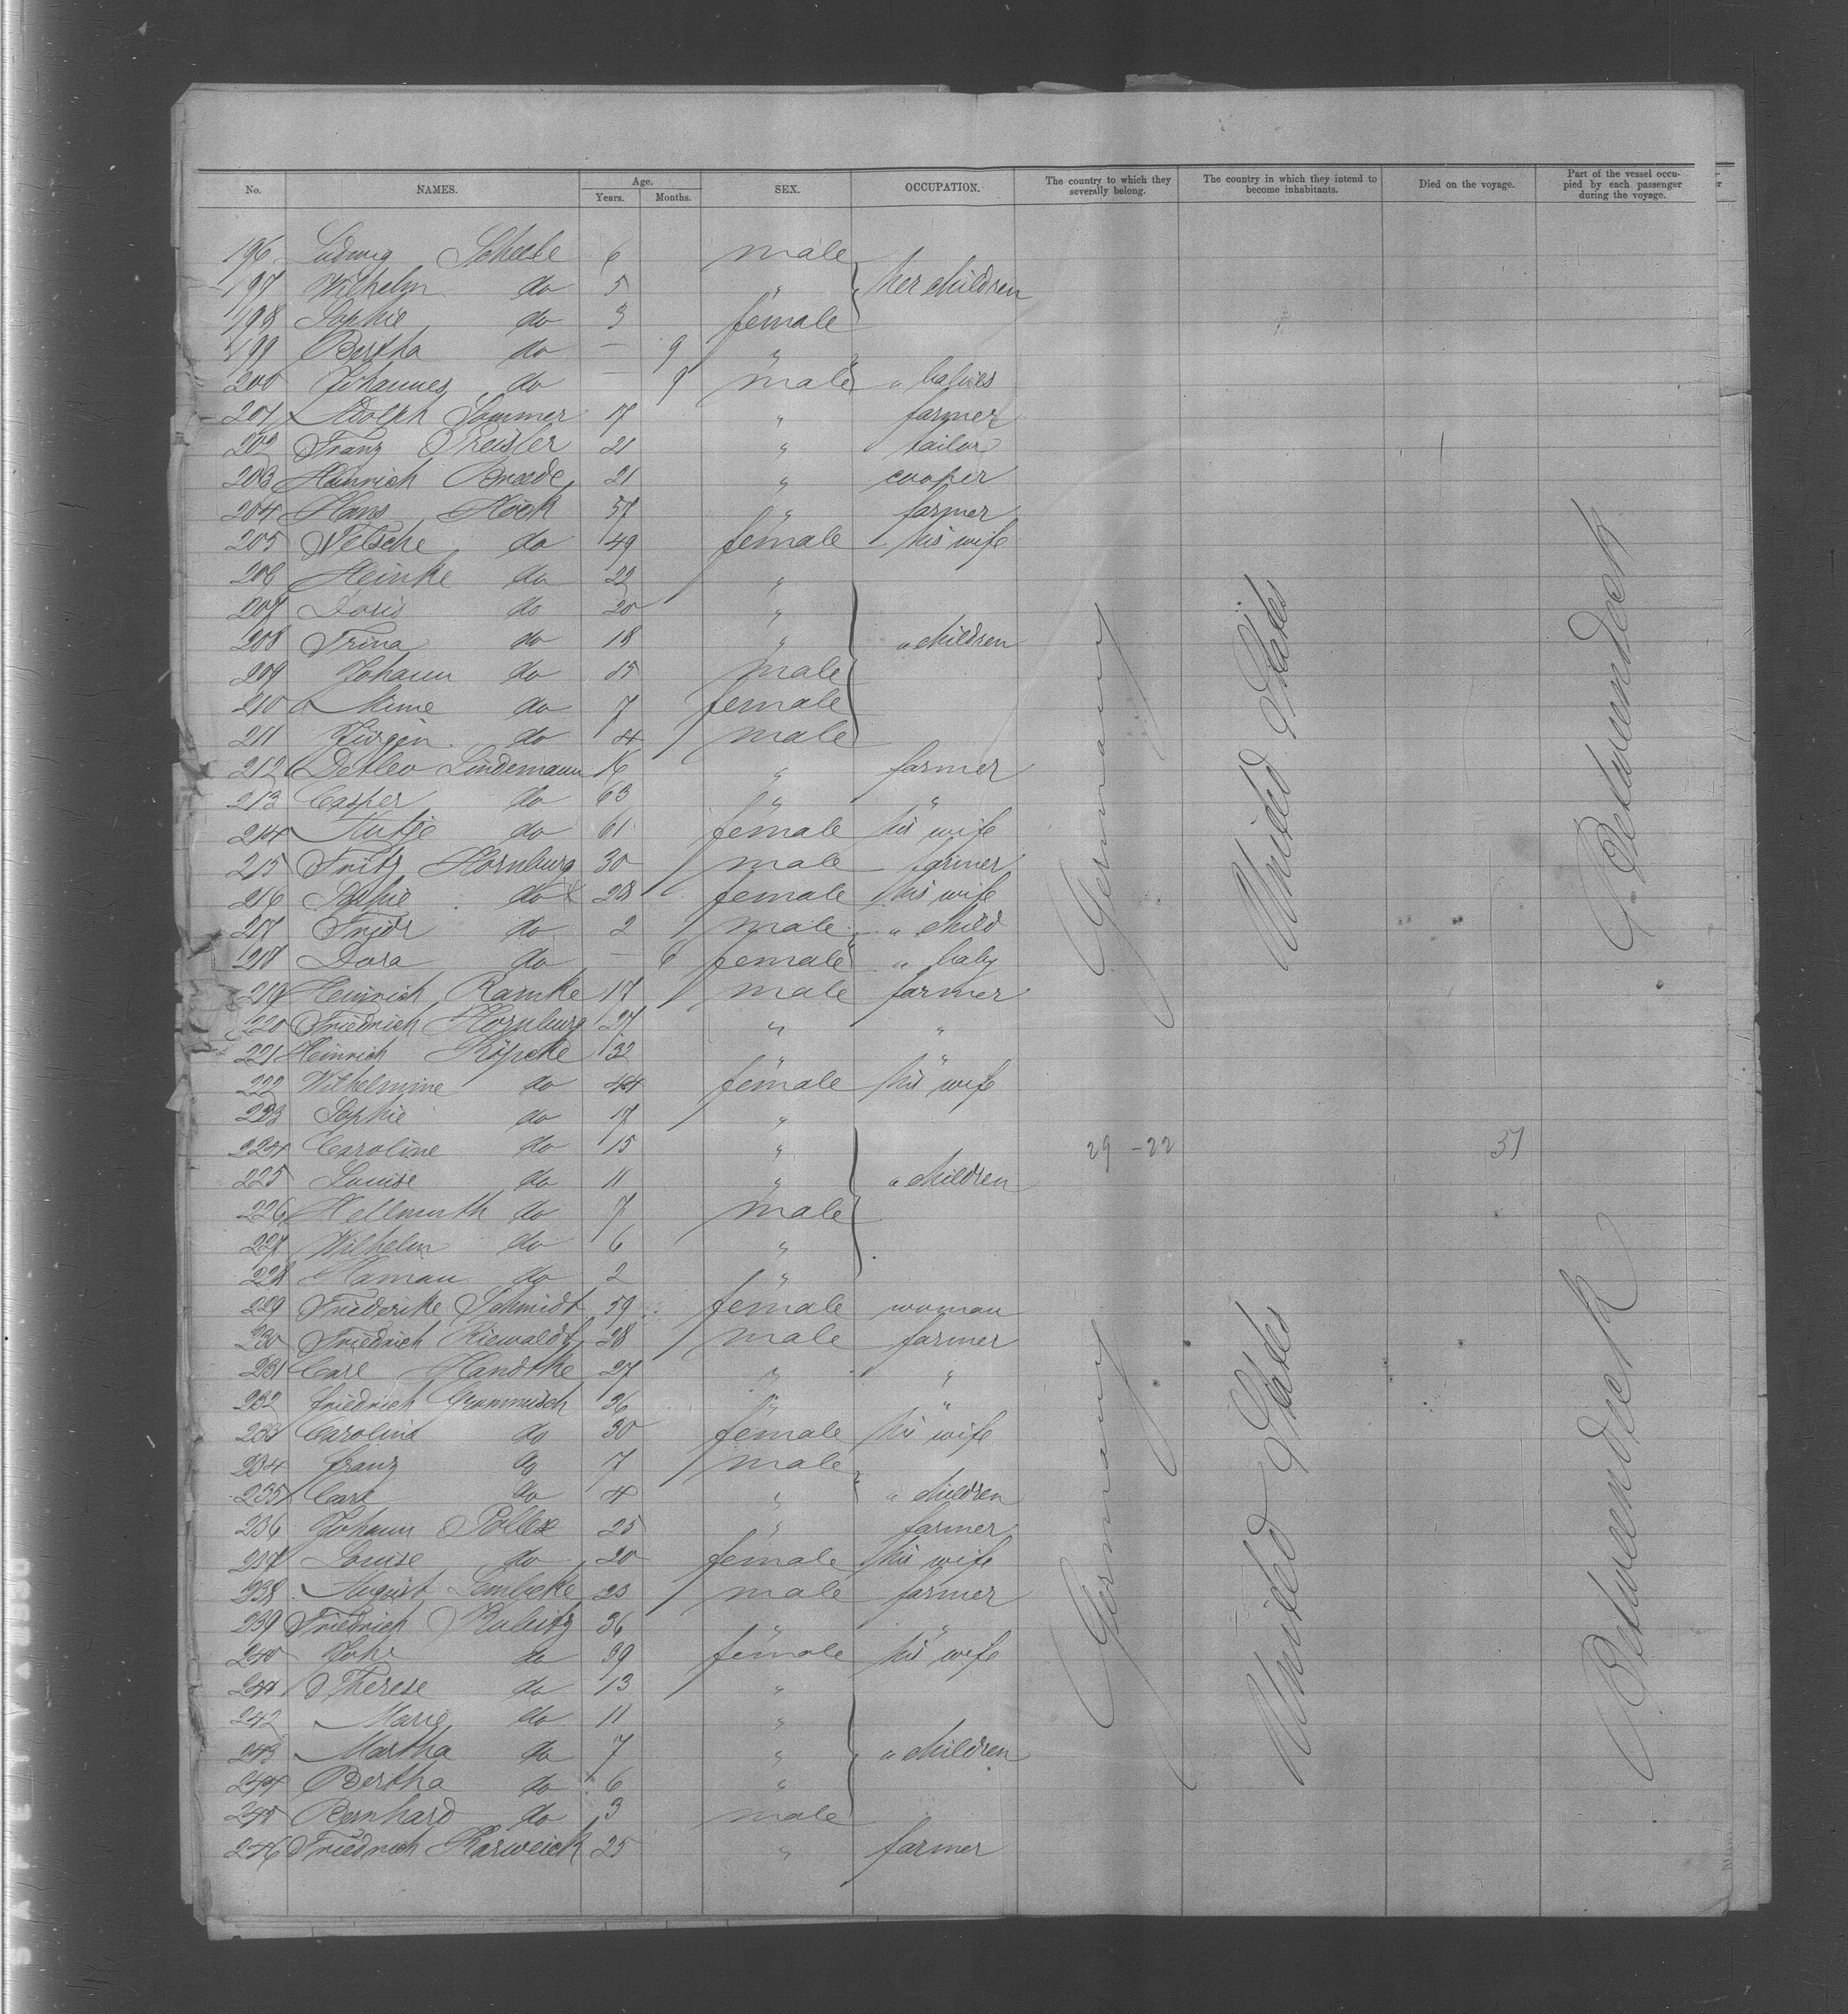 No. NAMES. Age. Years. Months. SEX. OCCUPATION. The country to which they severally belong. The country in which they intend to become inhabitants. Died on the voyage. Part of the vessel occupied by each passenger during the voyage.
196 Ludwig Scheele 6 male
197 Wilhelm do 5 " her children
198 Sophie do 3 female
199 Bertha do — 9 "
200 Johannes do — 9 male " babies
201 Adolph Sommer 17 " farmer
202 Franz 21 " tailor
203 Heinrich Breede 21 " cooper
204 Hans Höck 57 " farmer
205 do 49 female his wife
206 Heinke do 22 "
207 Doris do 20 "
208 Trina do 18 " " children
209 Johann do 15 male
210 Mime do 7 female
211 Jürgen do 4 male
212 Detlev Lindemann 16 " farmer
213 Casper do 63 " "
214 do 61 female his wife
215 Fritz Hornburg 30 male farmer
216 Sophie do 28 female his wife
217 Fridr do 2 male " child
218 Dora do — 6 female " baby
219 Heinrich Ramke 17 male farmer
220 Friedrich Hornburg 27 " "
221 Heinrich Köpcke 32 " "
222 Wilhelmine do 44 female his wife
223 Sophie do 17 "
224 Caroline do 15 " 29 - 22
225 Louise do 11 " " children
226 Hellmuth do 7 male
227 Wilhelm do 6 "
228 Haman do 2 "
229 Friederike Schmidt 59 female woman
230 Friedrich Riewaldt 28 male farmer
231 Carl Handtke 27 " "
232 Friedrich 36 " "
233 Caroline do 30 female his wife
234 Franz do 7 male
235 Carl do 4 " " children
236 Johann 25 " farmer
237 Louise do 20 female his wife
238 August Lembcke 23 male farmer
239 Friedrich 36 "
240 do 39 female his wife
241 Therese do 13 "
242 Marie do 11 "
243 Martha do 7 " " children
244 Bertha do 6 "
245 Bernhard do 3 male
246 Friedrich Karweick 25 " farmer
Germany
United States
Betweendeck
Germany
United States
Betweendeck